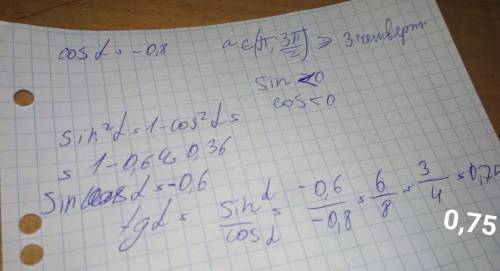 cos α = -0,8    α ∈ (π; 3π/2) ⇒ 3 четверт
sin < 0
cos < 0
sin²α = 1 - cos²α =
= 1 - 0,64 = 0,36
sin α = -0,6
tg α = sin α / cos α = -0,6 / -0,8 = 6/8 = 3/4 = 0,75
0,75